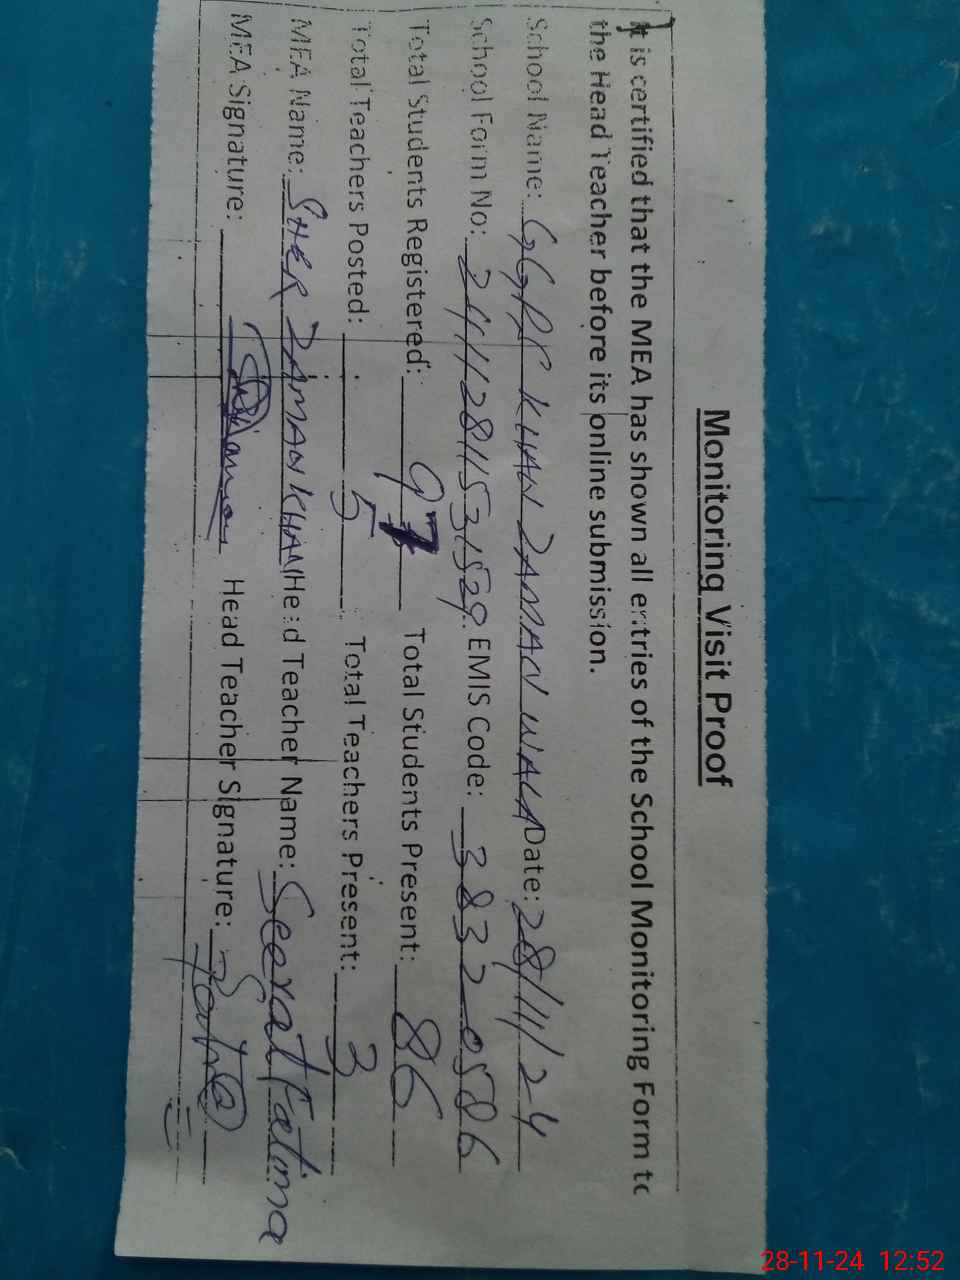 Monitoring Visit Proof
It is certified that the MEA has shown all entries of the School Monitoring Form to
the Head Teacher before its online submission.
School Name: GGPS KHAN ZAMAN WALA Date: 28/11/24
School Form No: 24112811531529. EMIS Code: 38320586
Total Students Registered: 97 Total Students Present: 86
Total Teachers Posted: 5 Total Teachers Present: 3
MEA Name: SHER ZAMAN KHAN Head Teacher Name: Seerat Fatima
MEA Signature: Head Teacher Signature:
28-11-24 12:52